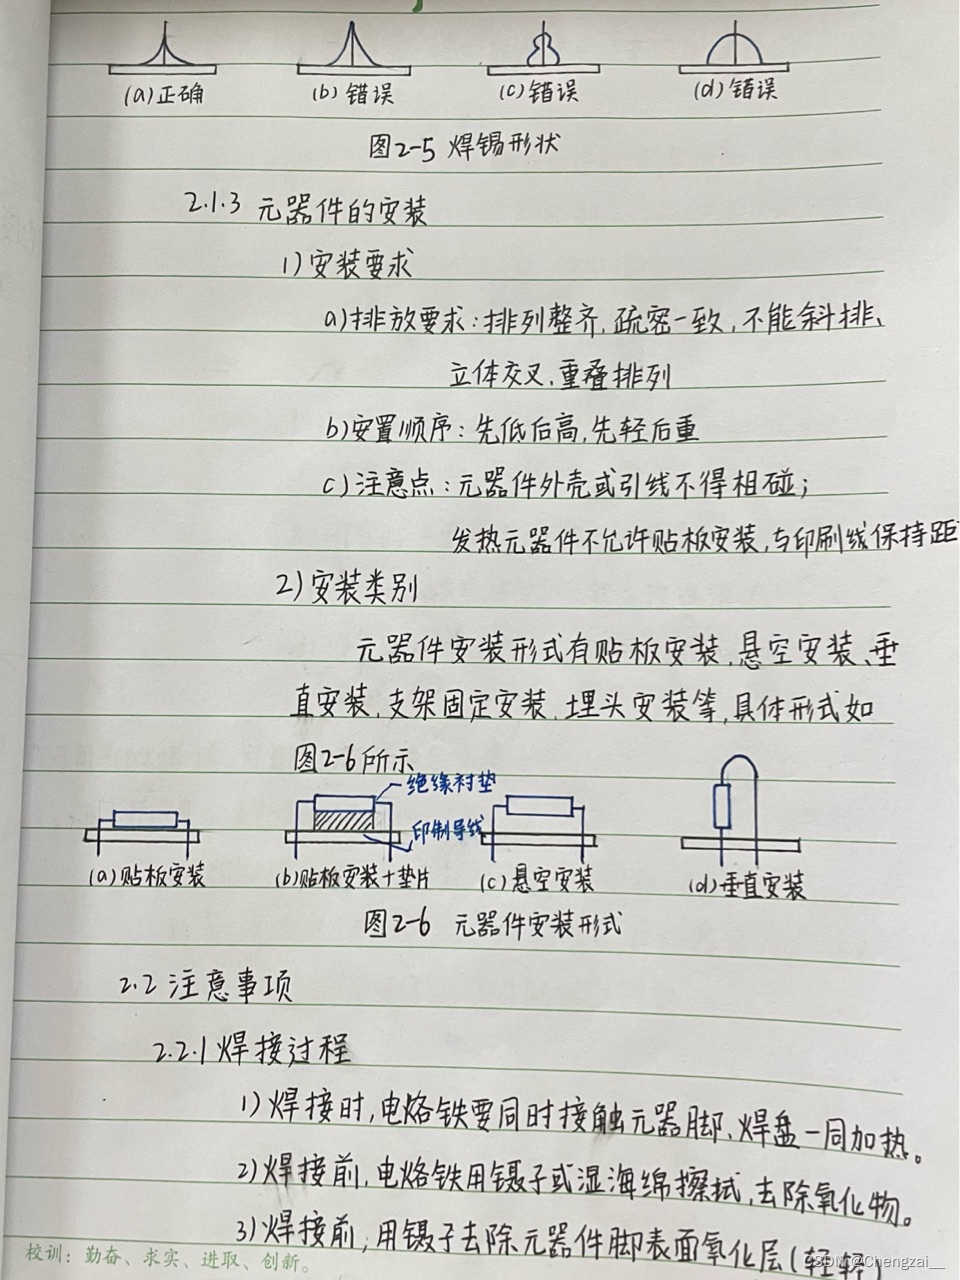 (a)正确 (b)错误 (c)错误 (d)错误
图2-5 焊锡形状
2.1.3 元器件的安装
1)安装要求
a)排放要求:排列整齐,疏密一致,不能斜排、
立体交叉、重叠排列
b)安置顺序:先低后高,先轻后重
c)注意点:元器件外壳或引线不得相碰;
发热元器件不允许贴板安装,与印刷线保持距
2)安装类别
元器件安装形式有贴板安装、悬空安装、垂
直安装、支架固定安装、埋头安装等,具体形式如
图2-6所示
绝缘衬垫
印制导线
(a)贴板安装 (b)贴板安装+垫片 (c)悬空安装 (d)垂直安装
图2-6 元器件安装形式
2.2 注意事项
2.2.1 焊接过程
1)焊接时,电烙铁要同时接触元器脚、焊盘一同加热。
2)焊接前,电烙铁用镊子或湿海绵擦拭,去除氧化物。
3)焊接前,用镊子去除元器件脚表面氧化层(轻轻)
校训:勤奋、求实、进取、创新。
CSDN @Chengzai__